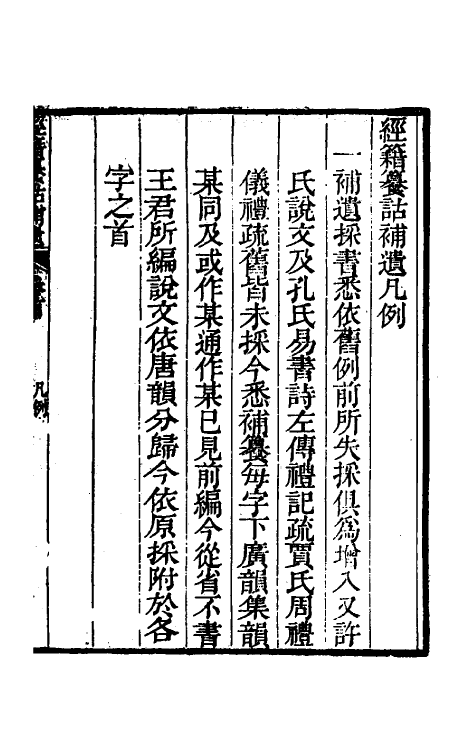 經籍籑詁補遺凡例
一補遺採書悉依舊例前所失採俱為增入又許
氏說文及孔氏易書詩左傳禮記疏賈氏周禮
儀禮疏舊皆未採今悉補籑每字下廣韻集韻
某同及或作某通作某已見前編今從省不書
王君所編說文依唐韻分歸今依原採附於各
字之首
凡例